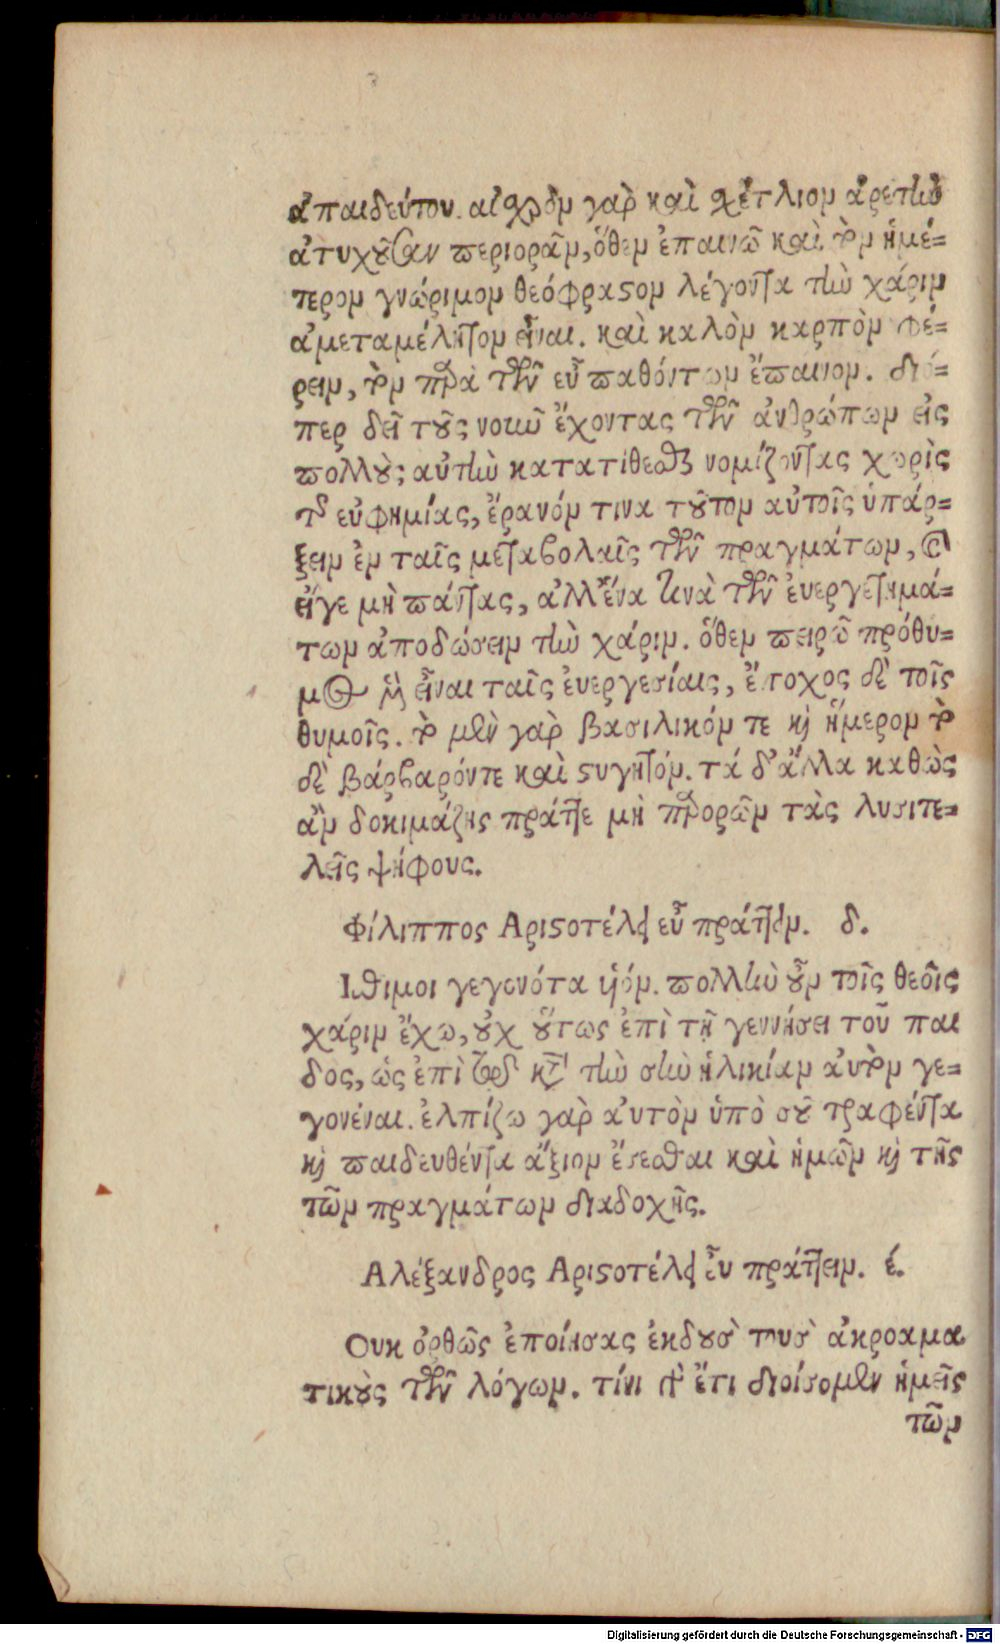 ἀπαιδεύτου. αἰσχρὸν γὰρ καὶ σχέτλιον ἀρετὴν
ἀτυχοῦσαν περιορᾶν, ὅθεν ἐπαινῶ καὶ τὸν ἡμέ-
τερον γνώριμον θεόφραστον λέγοντα τὴν χάριν
ἀμεταμέλητον εἶναι. καὶ καλὸν καρπὸν φέ-
ρειν, τὸν παρὰ τῶν εὖ παθόντων ἔπαινον. διό-
περ δεῖ τοὺς νοῦν ἔχοντας τῶν ἀνθρώπων εἰς
πολλοὺς αὐτὴν κατατίθεσθαι νομίζοντας χωρὶς
τῆς εὐφημίας, ἔρανόν τινα τοῦτον αὐτοῖς ὑπάρ-
ξειν ἐν ταῖς μεταβολαῖς τῶν πραγμάτων, καὶ
εἴγε μὴ πάντας, ἀλλ' ἕνα τινὰ τῶν ἐυεργετημά-
των ἀποδώσειν τὴν χάριν. ὅθεν πειρῶ πρόθυ-
μος μὲν εἶναι ταῖς ἐυεργεσίαις, ἔποχος δὲ τοῖς
θυμοῖς. τὸ μὲν γὰρ βασιλικόν τε καὶ ἥμερον τὸ
δὲ βάρβαρόντε καὶ στυγητόν. τά δ' ἄλλα καθὼς
ἂν δοκιμάζῃς πράττε μὴ παρορῶν τὰς λυσιτε-
λεῖς ψήφους.
Φίλιππος Αριστοτέλει εὖ πράττειν. δ.
Ισθιμοι γεγονότα ὑόν. πολλὴν οὖν τοῖς θεοῖς
χάριν ἔχω, οὐχ οὕτως ἐπὶ τῇ γεννήσει τοῦ παι
δος, ὡς ἐπὶ τῷ κατὰ τὴν σὴν ἡλικίαν ἀυτὸν γε-
γονέναι. ἐλπίζω γὰρ ἀυτὸν ὑπὸ σοῦ τραφέντα
καὶ παιδευθέντα ἄξιον ἔσεσθαι καὶ ἡμῶν καὶ τῆς
τῶν πραγμάτων διαδοχῆς.
Αλέξανδρος Αριστοτέλει ἔυ πράττειν. έ.
Ουκ ὀρθῶς ἐποίησας ἐκδοὺσ τουσ ἀκροαμα
τικοὺς τῶν λόγων. τίνι γὰρ ἔτι διοίσομεν ἡμεῖς
τῶν
Digitalisierung gefördert durch die Deutsche Forschungsgemeinschaft - DFG